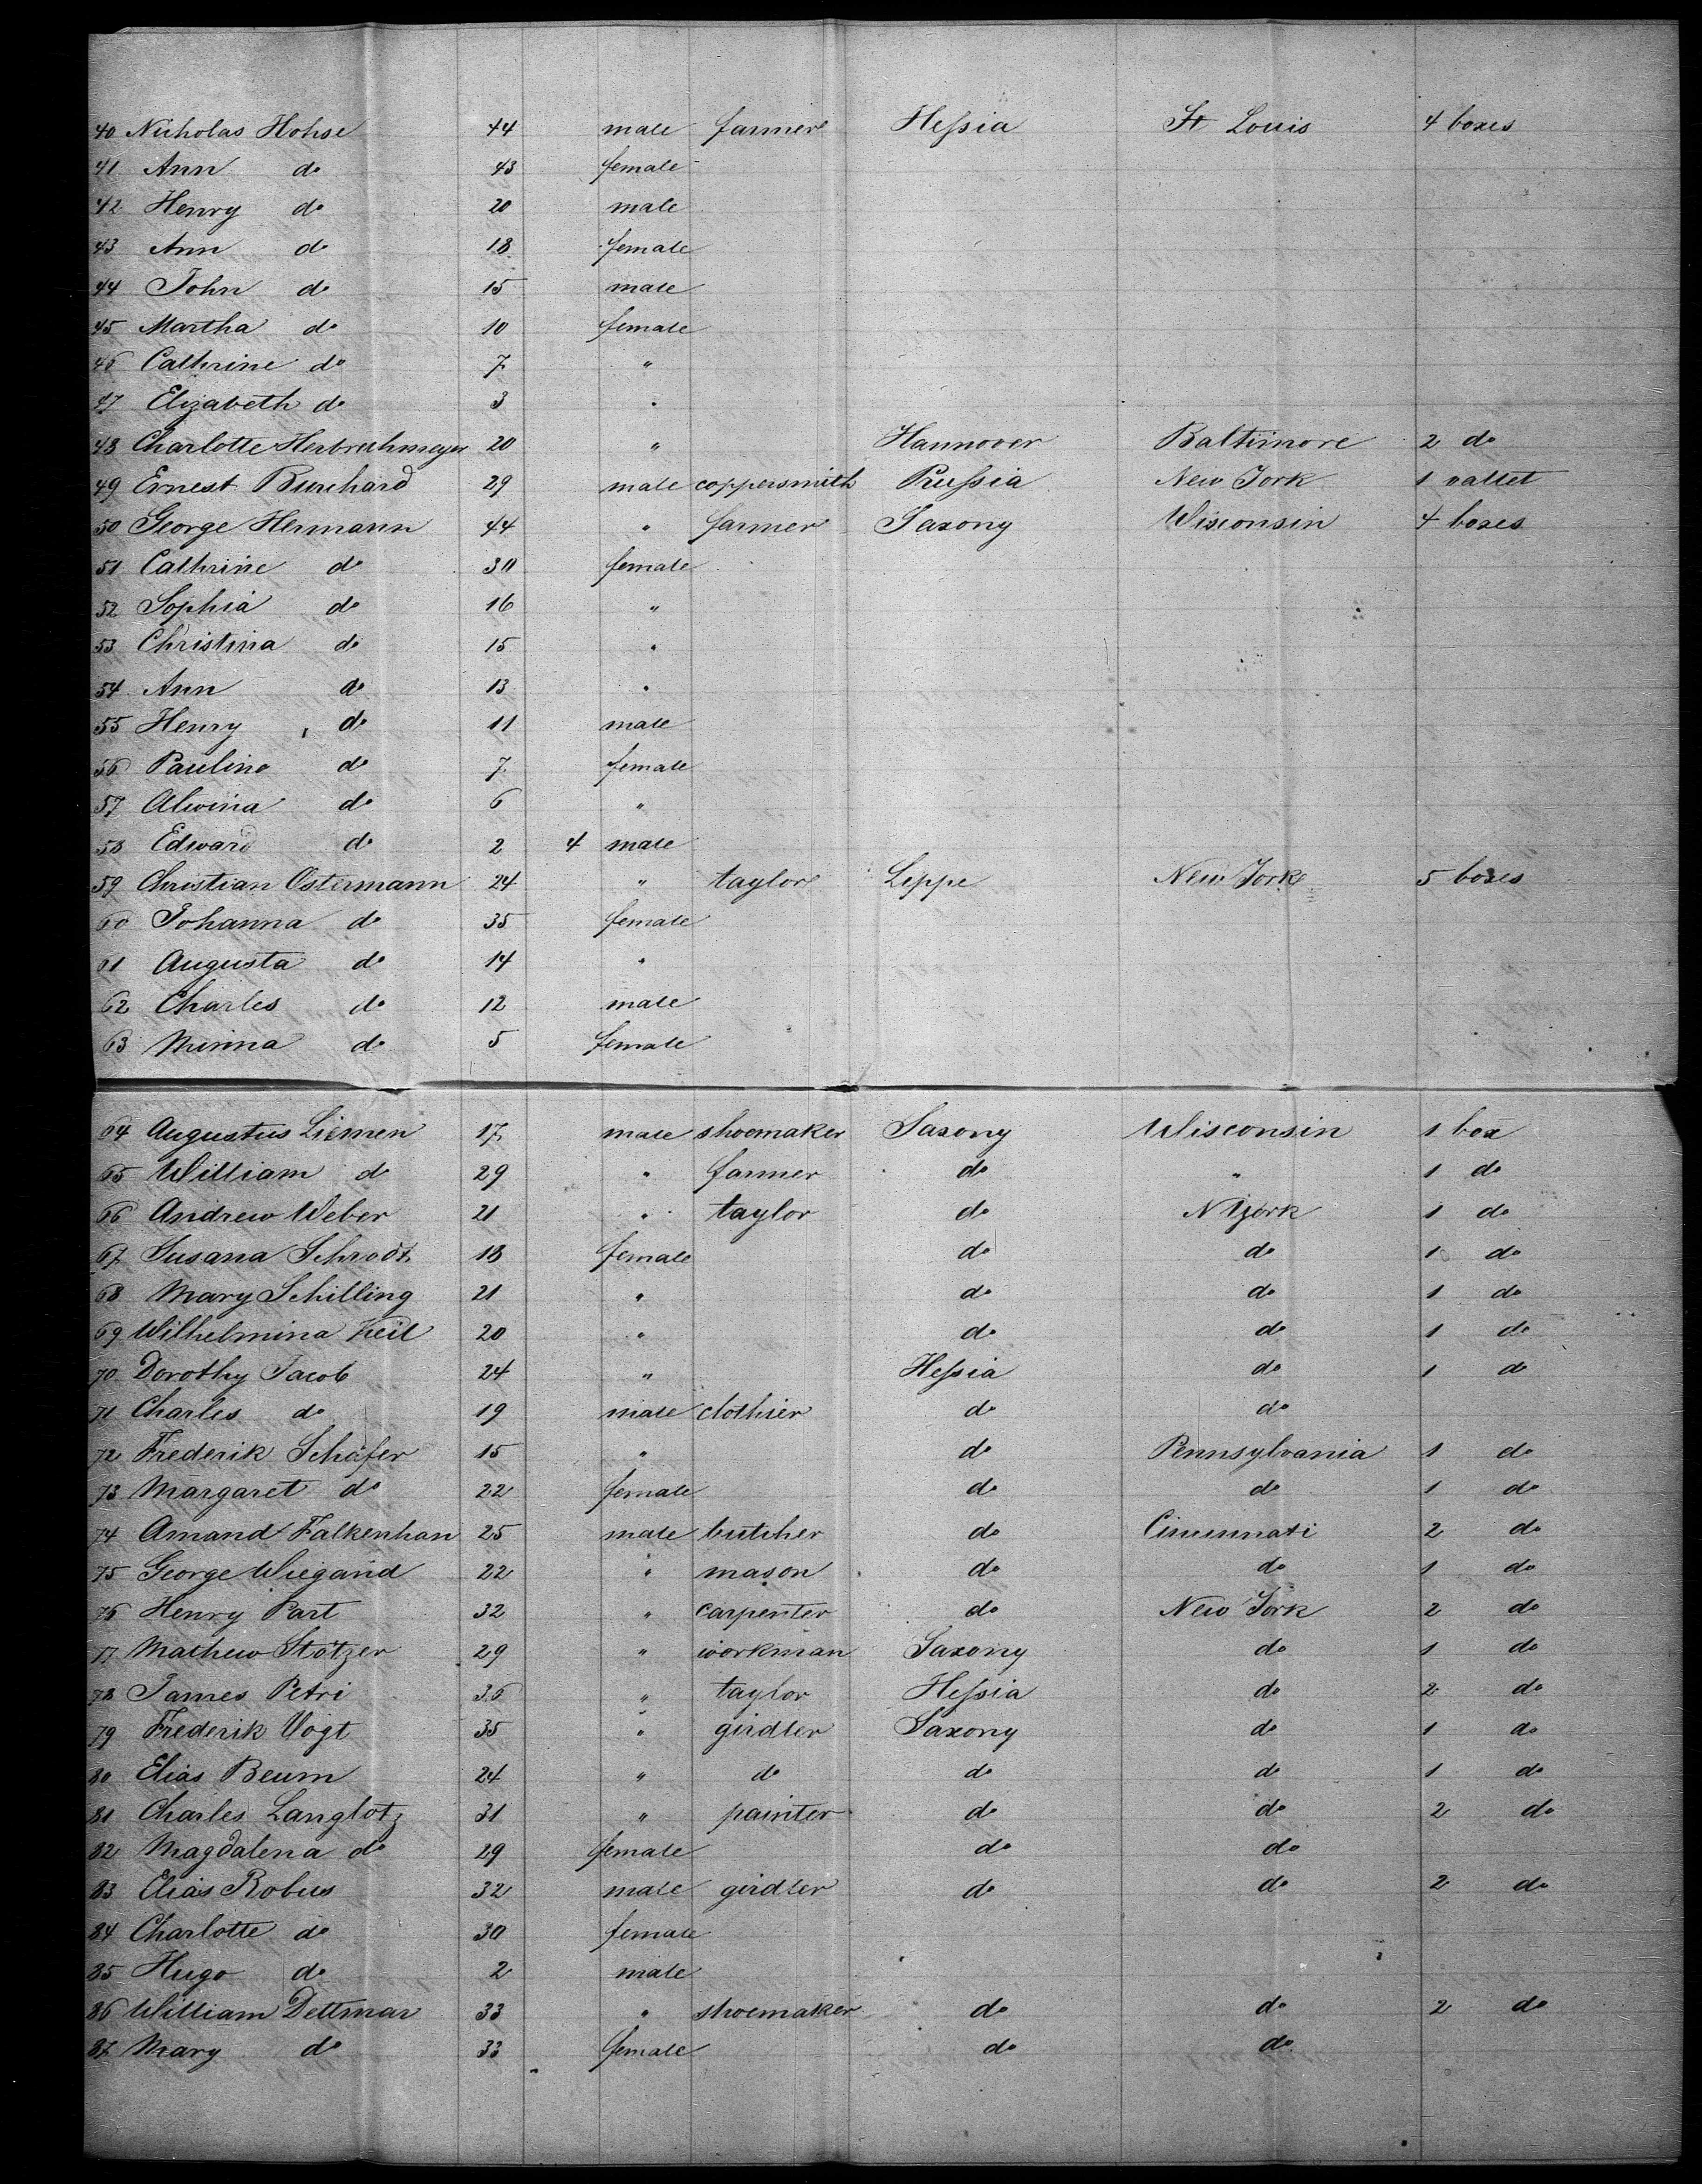 40 Nicholas Hohse 44 male farmer Hessia St Louis 4 boxes
41 Ann do 43 female
42 Henry do 20 male
43 Ann do 18 female
44 John do 15 male
45 Martha do 10 female
46 Cathrine do 7 "
47 Elizabeth do 3 "
48 Charlotte Herbrechmeyer 20 " Hannover Baltimore 2 do
49 Ernest Burchard 29 male coppersmith Prussia New York 1
50 George Hermann 44 " farmer Saxony Wisconsin 4 boxes
51 Cathrine do 30 female
52 Sophia do 16 "
53 Christina do 15 "
54 Ann do 13 "
55 Henry do 11 male
56 Pauline do 7 female
57 Alwina do 6 "
58 Edward do 2 4 male
59 Christian Ostermann 24 " taylor Lippe New York 5 boxes
60 Johanna do 35 female
61 Augusta do 14 "
62 Charles do 12 male
63 Minna do 5 female
64 Augustus Liemen 17 male shoemaker Saxony Wisconsin 1 box
65 William do 29 " farmer do " 1 do
66 Andrew Weber 21 " taylor do NYork 1 do
67 Susana Schrodt 18 female do do 1 do
68 Mary Schilling 21 " do do 1 do
69 Wilhelmina Keil 20 " do do 1 do
70 Dorothy Jacob 24 " Hessia do 1 do
71 Charles do 19 male clothier do do
72 Frederik Schäfer 15 " do Pennsylvania 1 do
73 Margaret do 22 female do do 1 do
74 Amand Falkenhan 25 male butcher do Cincinnati 2 do
75 George Wiegand 22 " mason do do 1 do
76 Henry Part 32 " carpenter do New York 2 do
77 Mathew Stötzer 29 " workman Saxony do 1 do
78 James Petri 36 " taylor Hessia do 2 do
79 Frederik Vogt 35 " girdler Saxony do 1 do
80 Elias Beum 24 " do do do 1 do
81 Charles Langlotz 31 " painter do do 2 do
82 Magdalena do 29 female do do
83 Elias Robus 32 male girdler do do 2 do
84 Charlotte do 30 female
85 Hugo do 2 male
86 William Dettmar 33 " shoemaker do do 2 do
87 Mary do 33 female do do